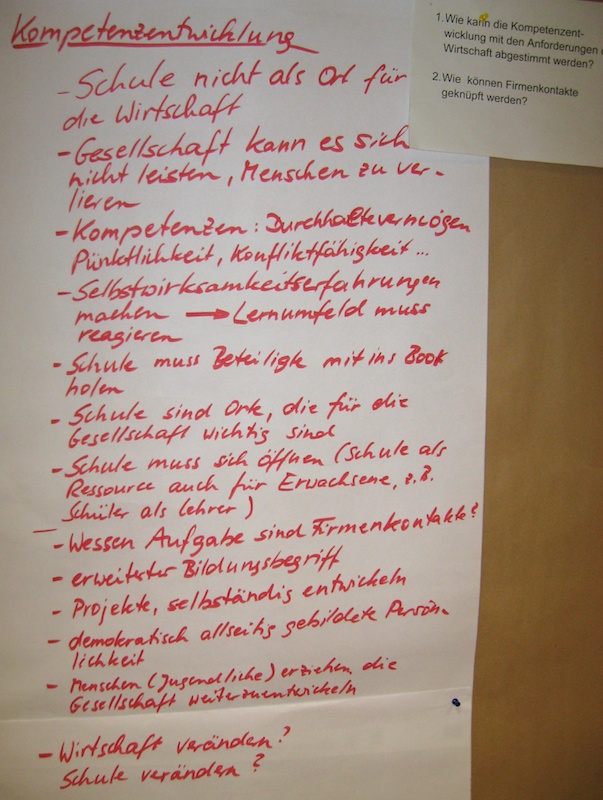 Kompetenzentwicklung
- Schule nicht als Ort für
die Wirtschaft
- Gesellschaft kann es sich
nicht leisten, Menschen zu ver-
lieren
- Kompetenzen: Durchhaltevermögen
Pünktlichkeit, Konfliktfähigkeit ...
- Selbstwirksamkeitserfahrungen
machen → Lernumfeld muss
reagieren
- Schule muss Beteiligte mit ins Boot
holen
- Schule sind Orte, die für die
Gesellschaft wichtig sind
- Schule muss sich öffnen (Schule als
Ressource auch für Erwachsene, z.B.
Schüler als Lehrer)
- Wessen Aufgabe sind Firmenkontakte?
- erweiterter Bildungsbegriff
- Projekte, selbständig entwickeln
- demokratisch allseitig gebildete Persön-
lichkeit
- Menschen (Jugendliche) erziehen, die
Gesellschaft weiterzuentwickeln
- Wirtschaft verändern?
Schule verändern?
1. Wie kann die Kompetenzent-
wicklung mit den Anforderungen
Wirtschaft abgestimmt werden?
2. Wie können Firmenkontakte
geknüpft werden?